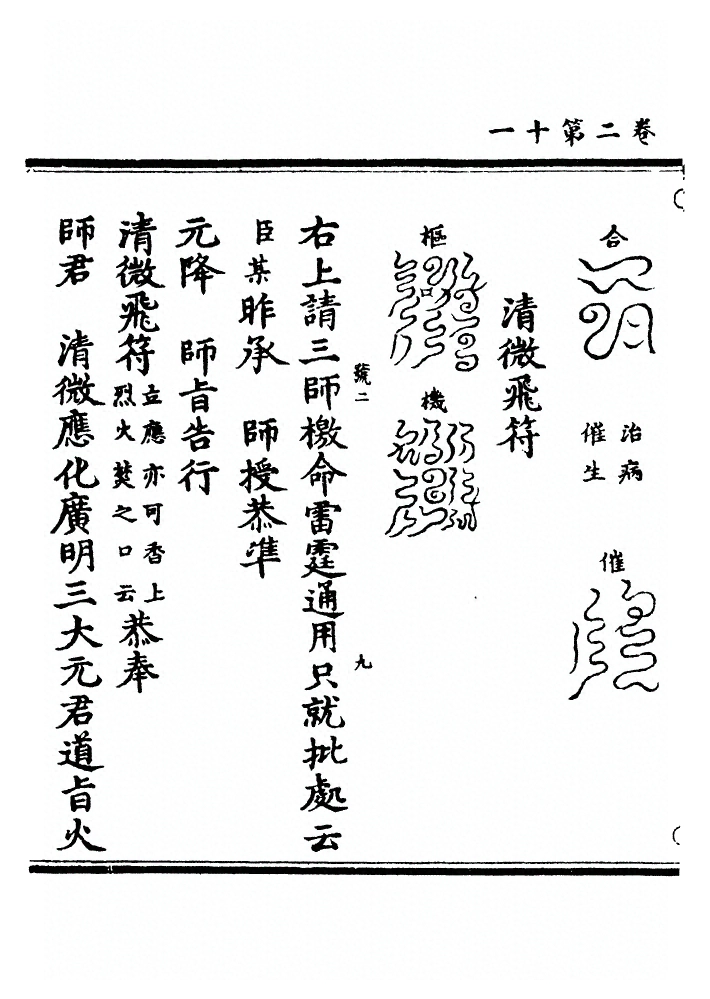 卷二第十一
合
治病
催生
催
清微飛符
樞
機
號二
九
右上請三師檄命雷霆通用只就批處云
臣某昨承　師授恭準
元降　師旨告行
清微飛符立應亦可香上烈火焚之口云恭奉
師君　清微應化廣明三大元君道旨火